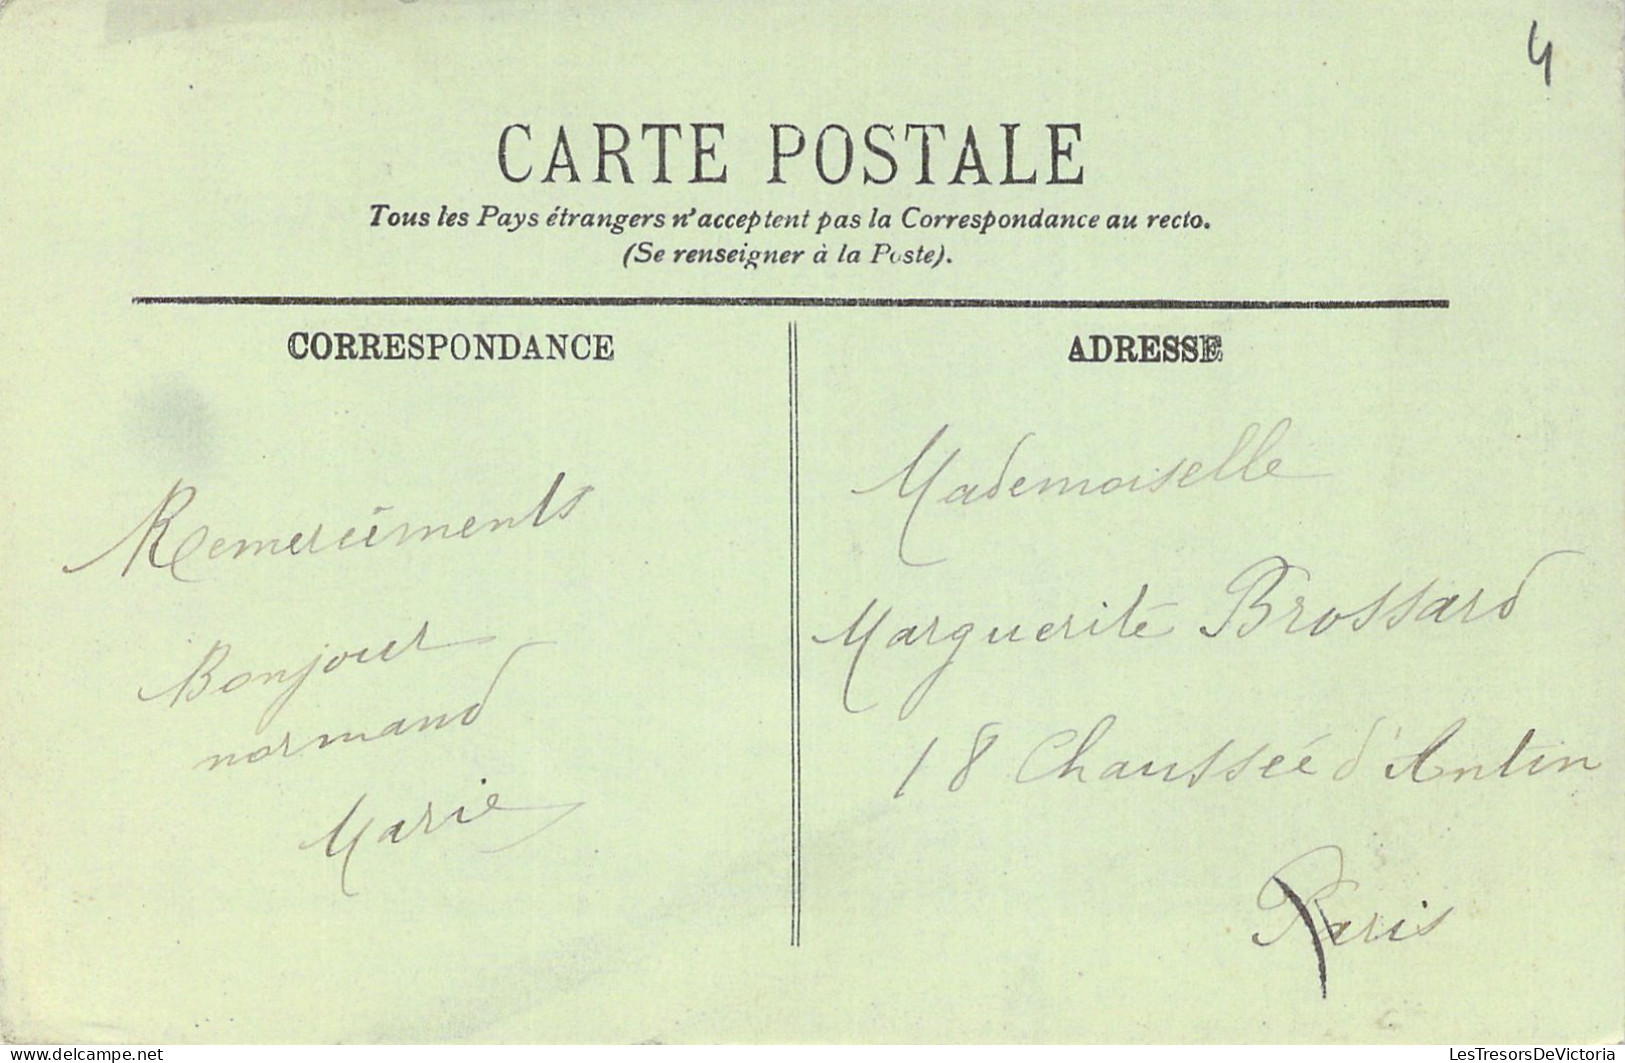 4
CARTE POSTALE
Tous les Pays étrangers n'acceptent pas la Correspondance au recto.
(Se renseigner à la Poste).
CORRESPONDANCE
Remerciements
Bonjour
normand
Marie
ADRESSE
Mademoiselle
Marguerite Brossard
18 Chaussée d'Antin
Paris
www.delcampe.net
LesTresorsDeVictoria